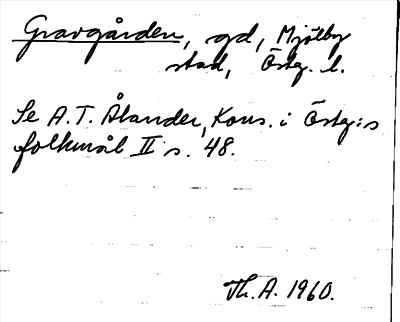 Gravgården, gd, Mjölby
stad, Östg. l.
Se A.T. Ålander, Kons. i Östg:s
folkmål II s. 48.
Th. A. 1960.